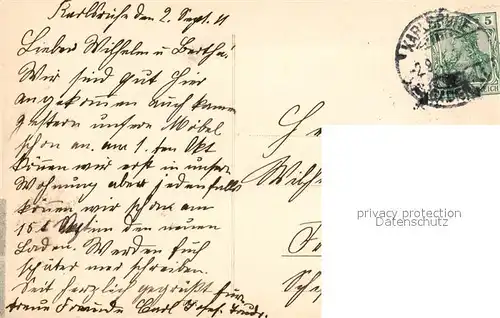 Karlsruhe den 2. Sept. 11
Lieber Wilhelm u. Bertha!
Wir sind gut hier
angekommen auch kamen
gestern unsere Möbel
schon an. am 1. ten Okt
können wir erst in unsere
Wohnung aber jedenfalls
können wir schon am
15. Sept in den neuen
Laden. Werden Euch
später mer schreiben.
Seid herzlich gegrüßt
treue Freunde Carl Josef Trudy.
He
Wilh
KARLSRUHE
5
REICH
privacy protection
Datenschutz